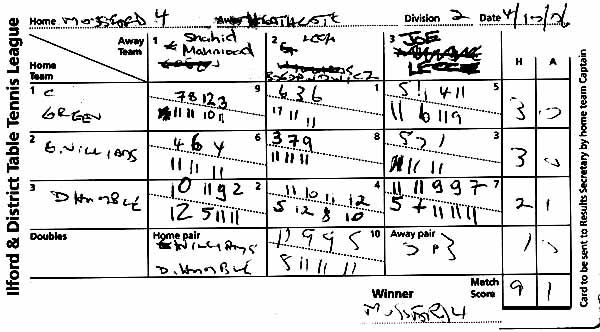 Ilford & District Table Tennis League
Home MOSSFORD 4 HEATHCOTE Division 2 Date 4/10/06
Away Team 1 Shahid Mahmood 2 LECH 3 JOE H A
Home Team
1 C GREEN 9 1 5 3 0
7 8 12 3 6 3 6 5 4 11
11 11 10 11 11 11 11 6 11 9
2 G. WILLIAMS 6 8 3 3 0
4 6 4 3 7 9 5 7 1
11 11 11 11 11 11 11 11 11
3 2 4 7 2 1
10 11 9 2 11 10 11 12 11 11 9 9 7
12 5 11 11 5 12 8 10 5 7 11 11 11
Doubles Home pair 10 Away pair 1 0
WILLIAMS 11 9 9 5
8 11 11 11
Winner Match Score 9 1
MOSSFORD 4
Card to be sent to Results Secretary by home team Captain